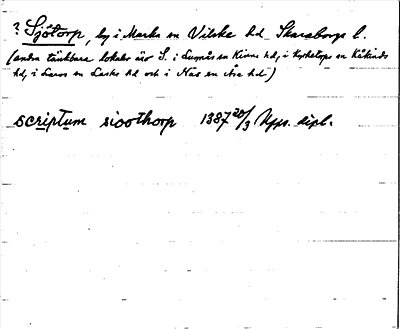 ? Sjötorp, by i Marka sn Vilske hd Skaraborgs l.
(andra tänkbara lokaler äro S. i Lugnås sn Kinne hd, i Kyrketorp sn Kåkinds
hd, i Larvs sn Laske hd och i Näs sn Åse hd)
scriptum sioothorp 1387 20/3 Upps. dipl.